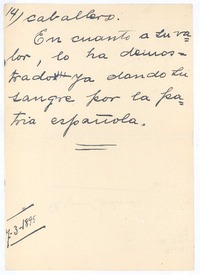 14) caballero.
En cuanto a su va-
lor, lo ha demos-
trado ya dando su
sangre por la pa-
tria española.
7-3-1895